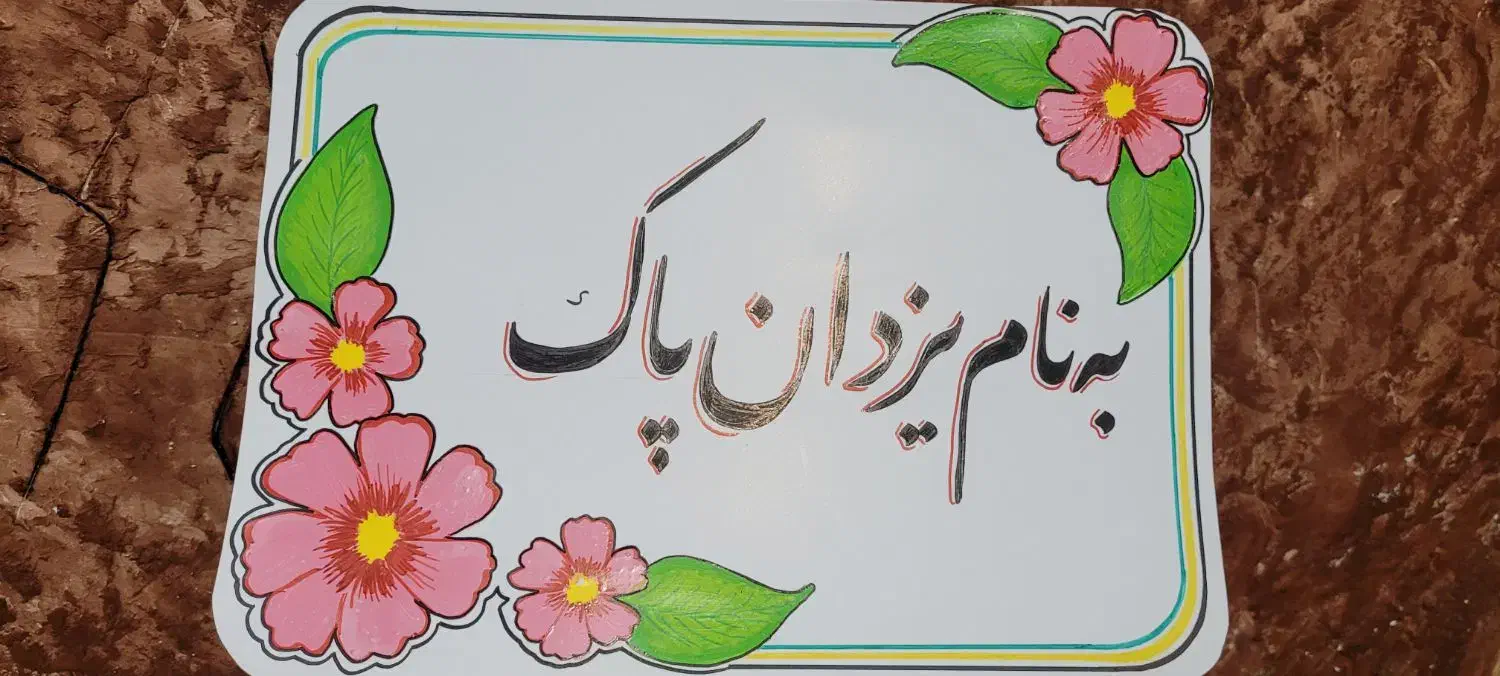 به نام یزدان پاک